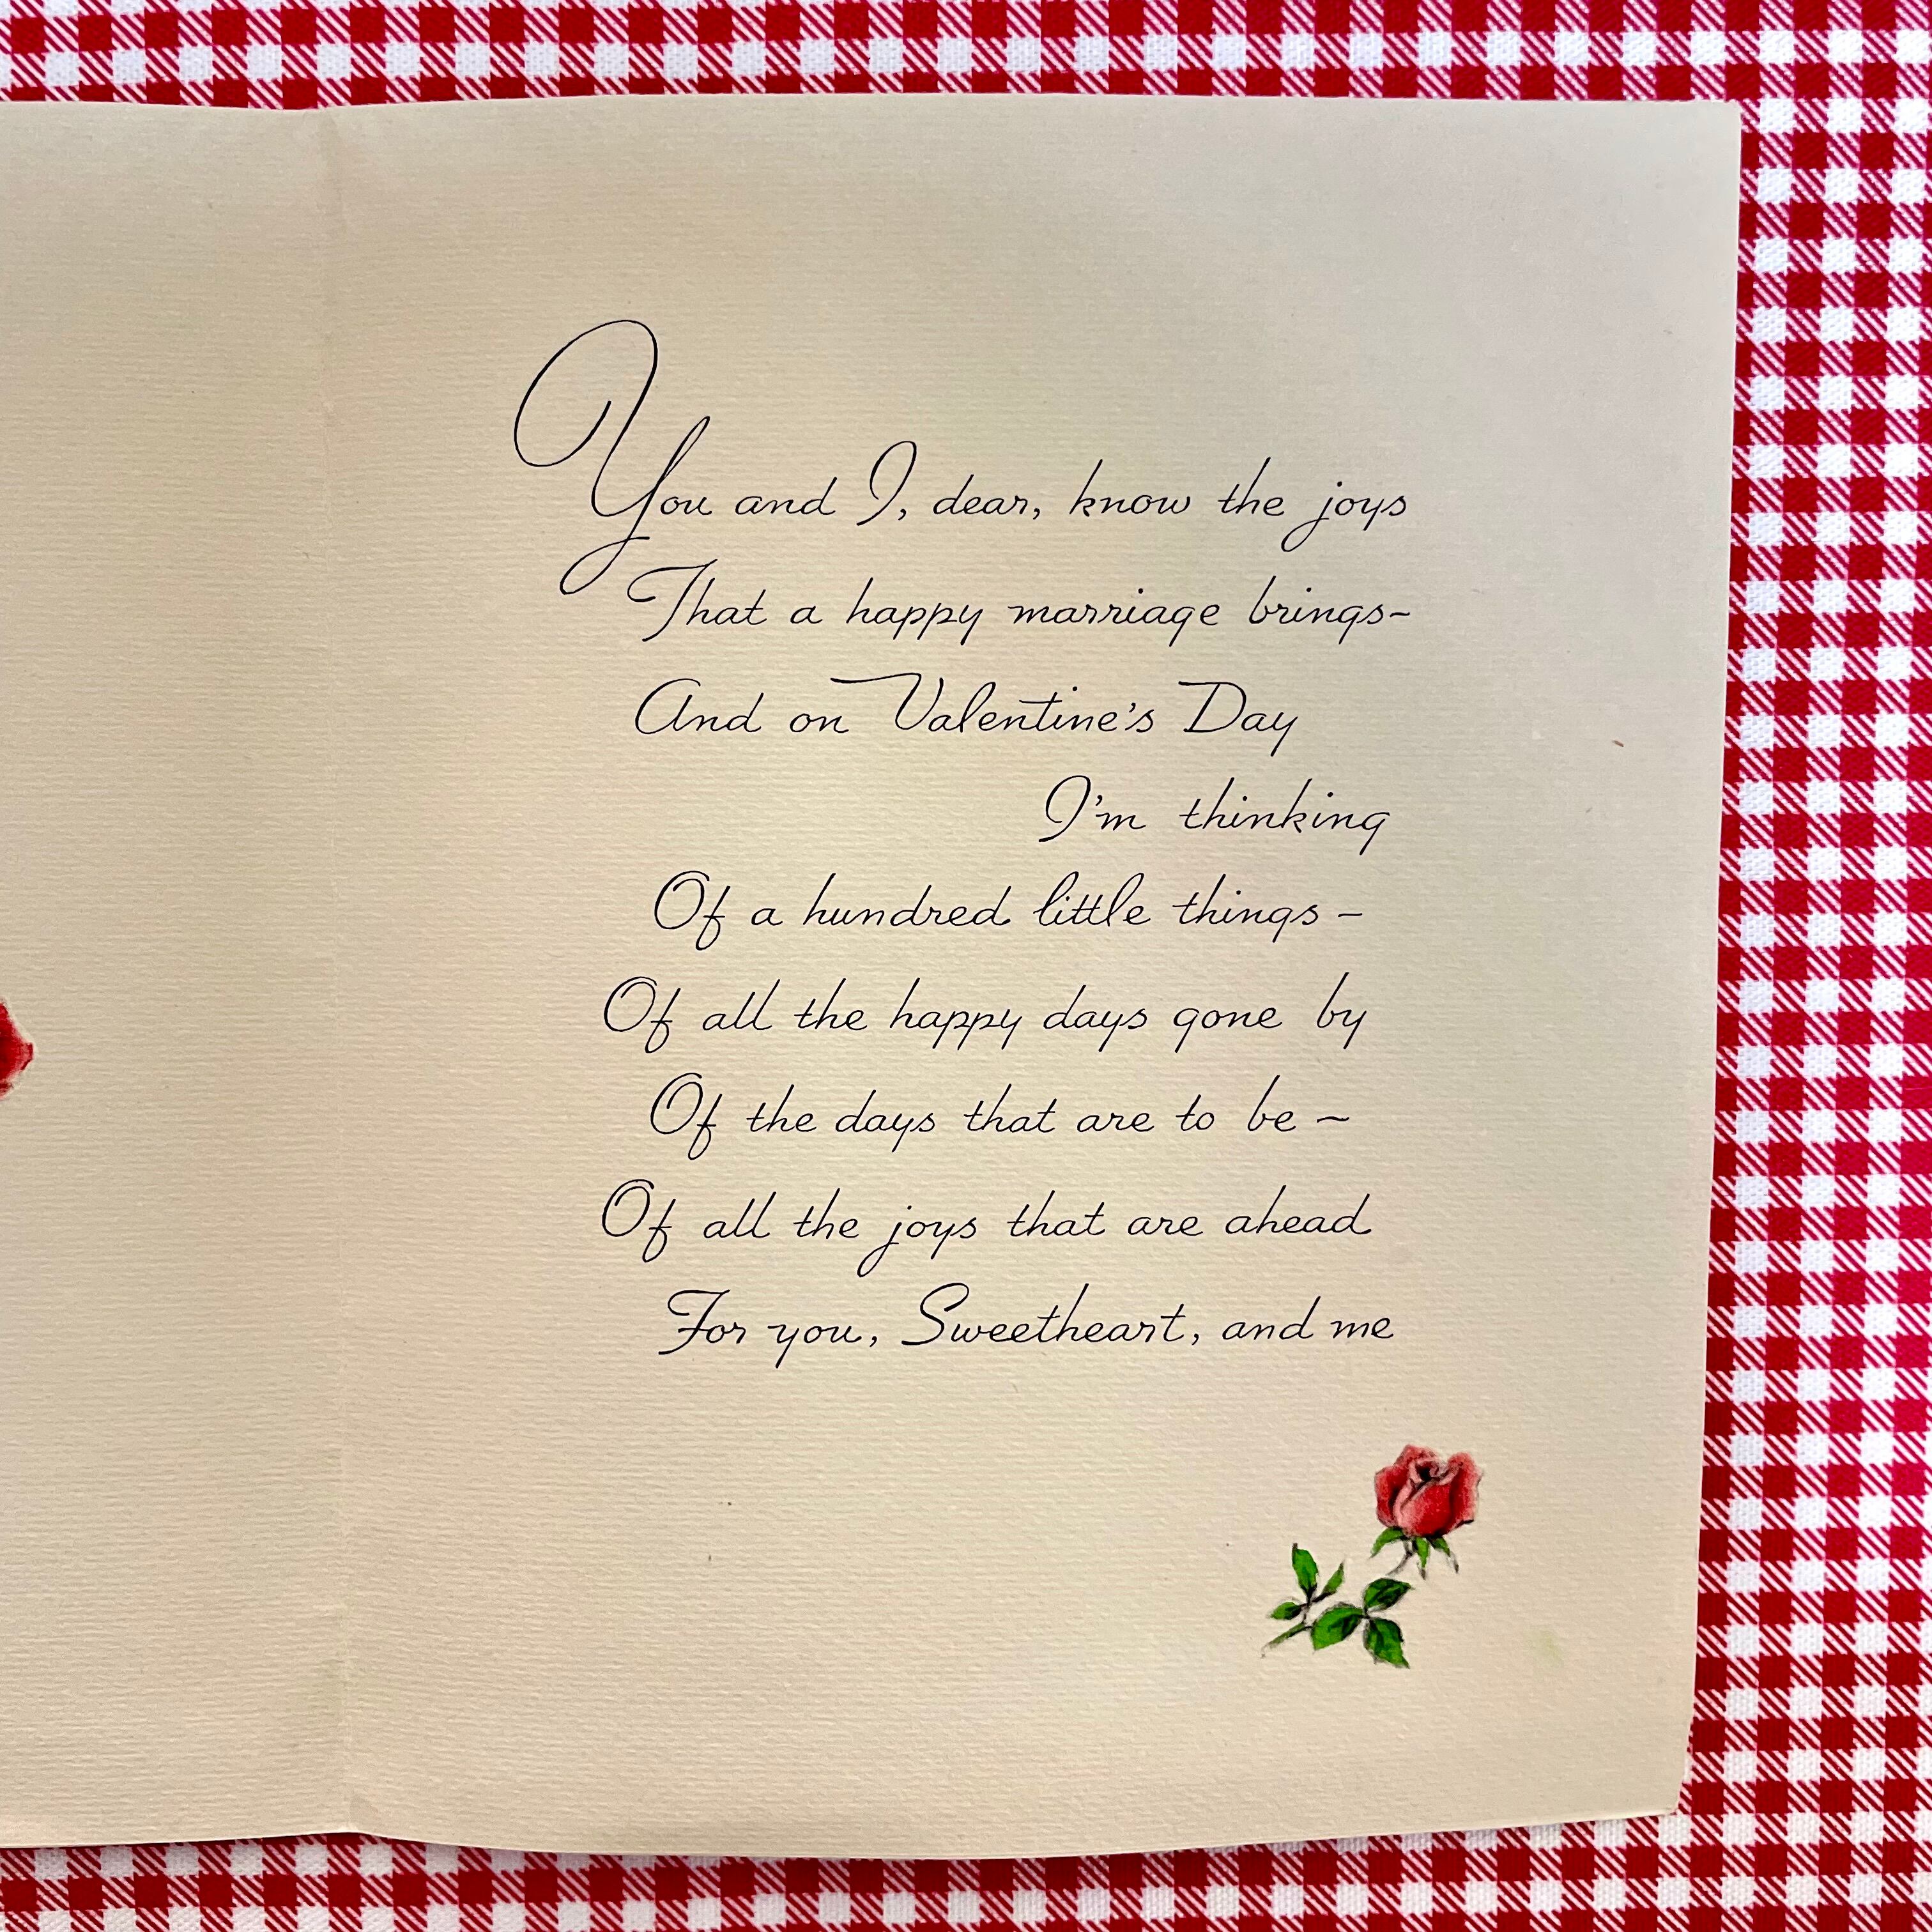 You and I, dear, know the joys
That a happy marriage brings-
And on Valentine's Day
I'm thinking
Of a hundred little things-
Of all the happy days gone by
Of the days that are to be~
Of all the joys that are ahead
For you, Sweetheart, and me